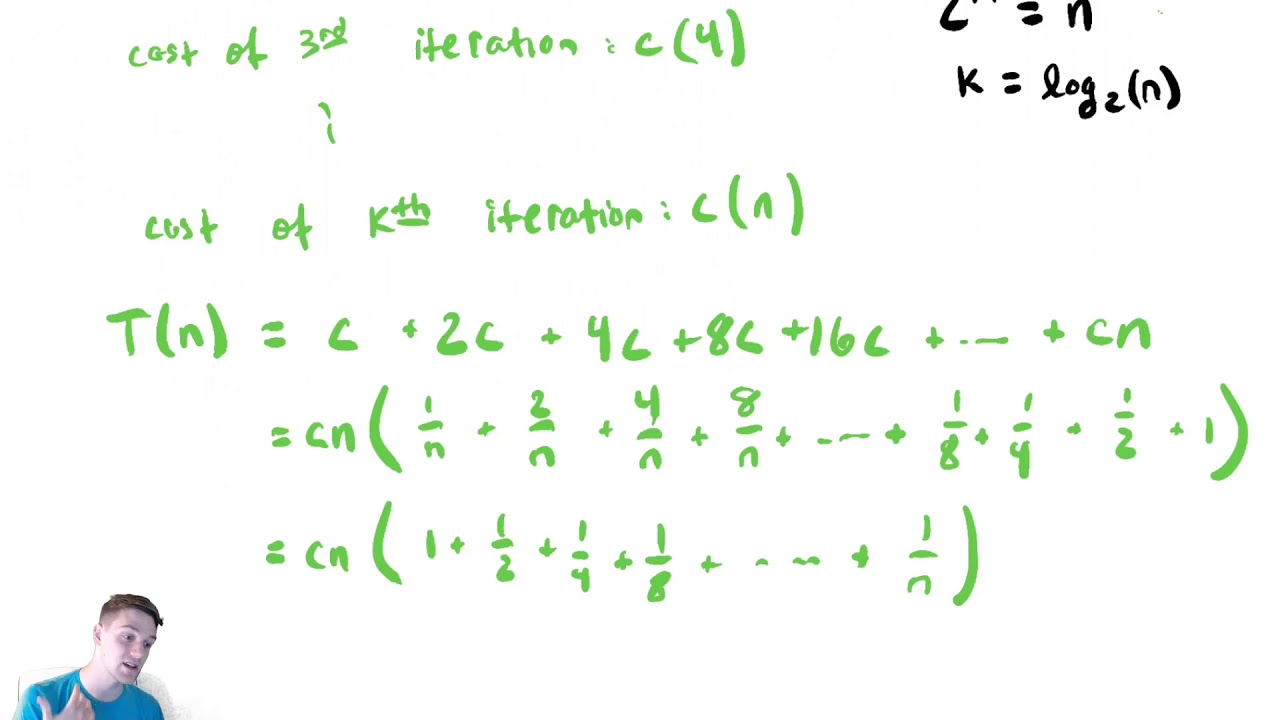 cost of 3rd iteration : c(4)
= n
k = log₂(n)
cost of kth iteration : c(n)
T(n) = c + 2c + 4c + 8c + 16c + ... + cn
= cn(1/n + 2/n + 4/n + 8/n + ... + 1/8 + 1/4 + 1/2 + 1)
= cn(1 + 1/2 + 1/4 + 1/8 + ... + 1/n)